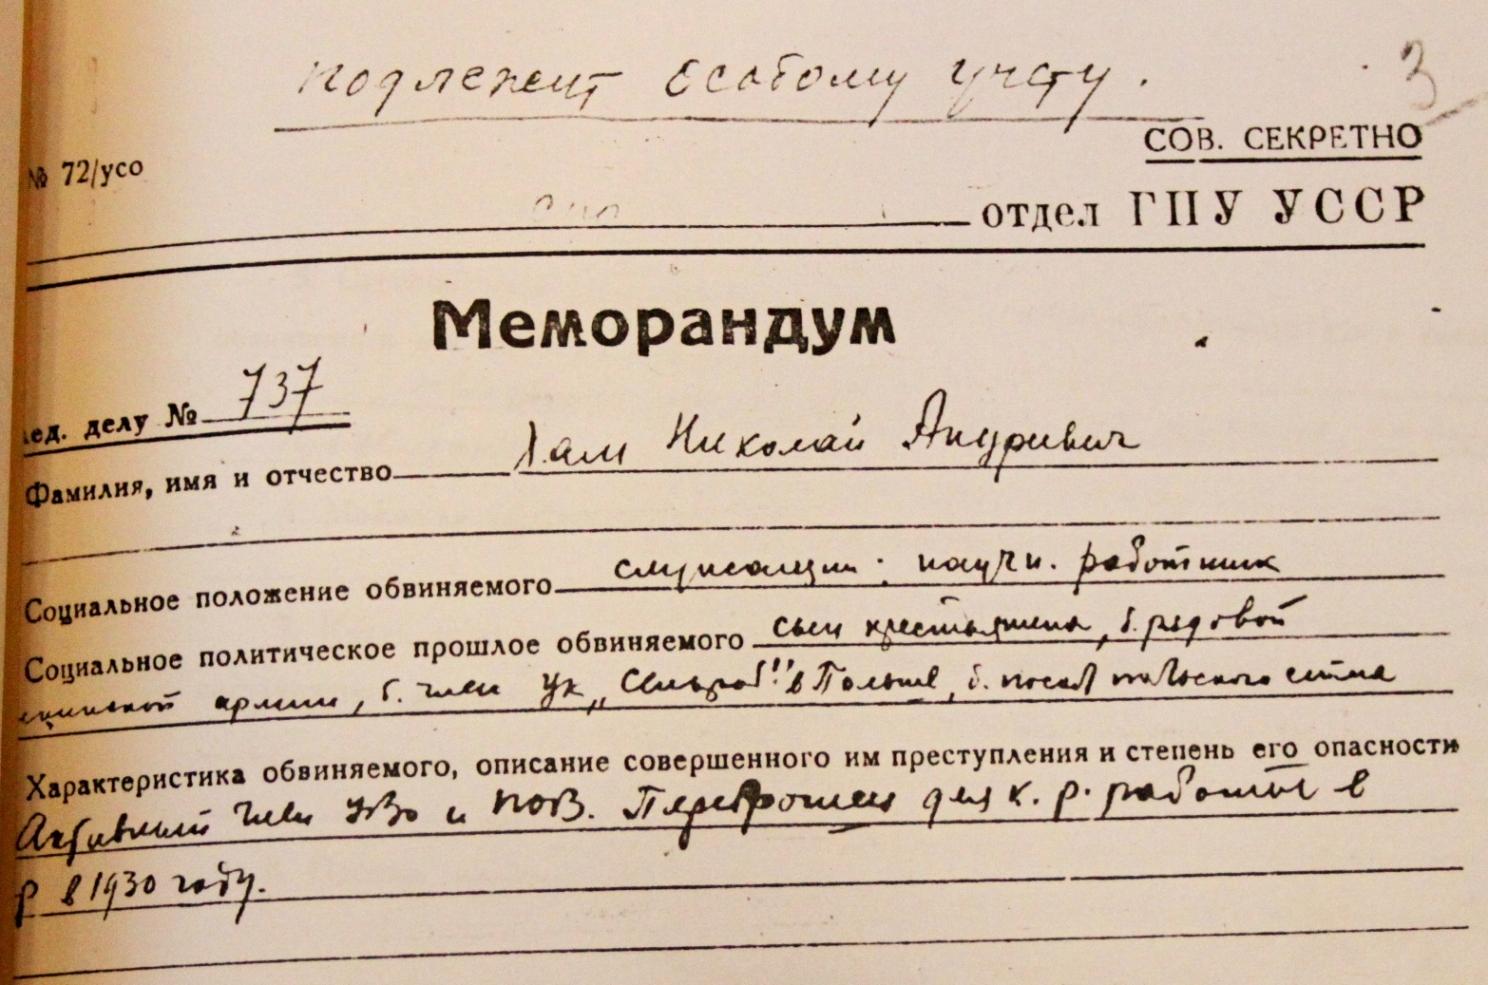 подлежит особому учету.
3
СОВ. СЕКРЕТНО
№ 72/усо
отдел ГПУ УССР
Меморандум
лед. делу № 737
Фамилия, имя и отчество Хам Николай Андреевич
Социальное положение обвиняемого служащий: научн. работник
Социальное политическое прошлое обвиняемого сын крестьянина, б. рядовой
армии, б. член ЦК „Сельроб" в Польше, б. посол польского сейма
Характеристика обвиняемого, описание совершенного им преступления и степень его опасности
Активный член УВО и ПОВ. Переброшен для к. р. работы в
р в 1930 году.